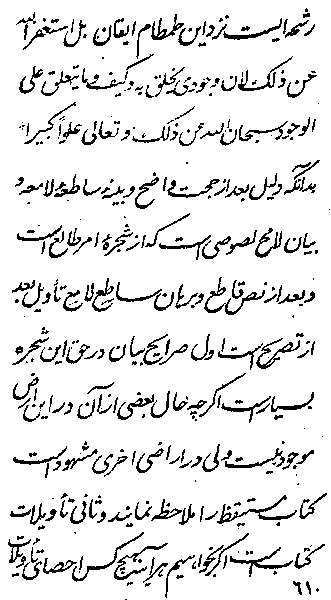 رشحه ایست نزد این طمطام ایقان بل استغفر الله
عن ذلک لان وجودی یخلق به وکیف وما یتعلق علی
الوجود سبحان الله عن ذلک و تعالی علواً کبیرا
بدانکه دلیل بعد از حجت واضح و بینه ساطعه لامعه و
بیان لامع نصوصی است که از شجره امر طالع است
و بعد از نص قاطع و برهان ساطع لامع تأویل بعد
از تصریح است اول صرایح بیان در حق این شجره
بسیار است اگر چه حال بعضی از آن در این اراض
موجود نیست ولی در اراضی اخری مشهود است
کتاب مستیقظ را ملاحظه نمایند و ثانی تأویلات
کتاب است اگر بخواهیم هر آینه هیچ کس احصای تأویلات
٦١٠